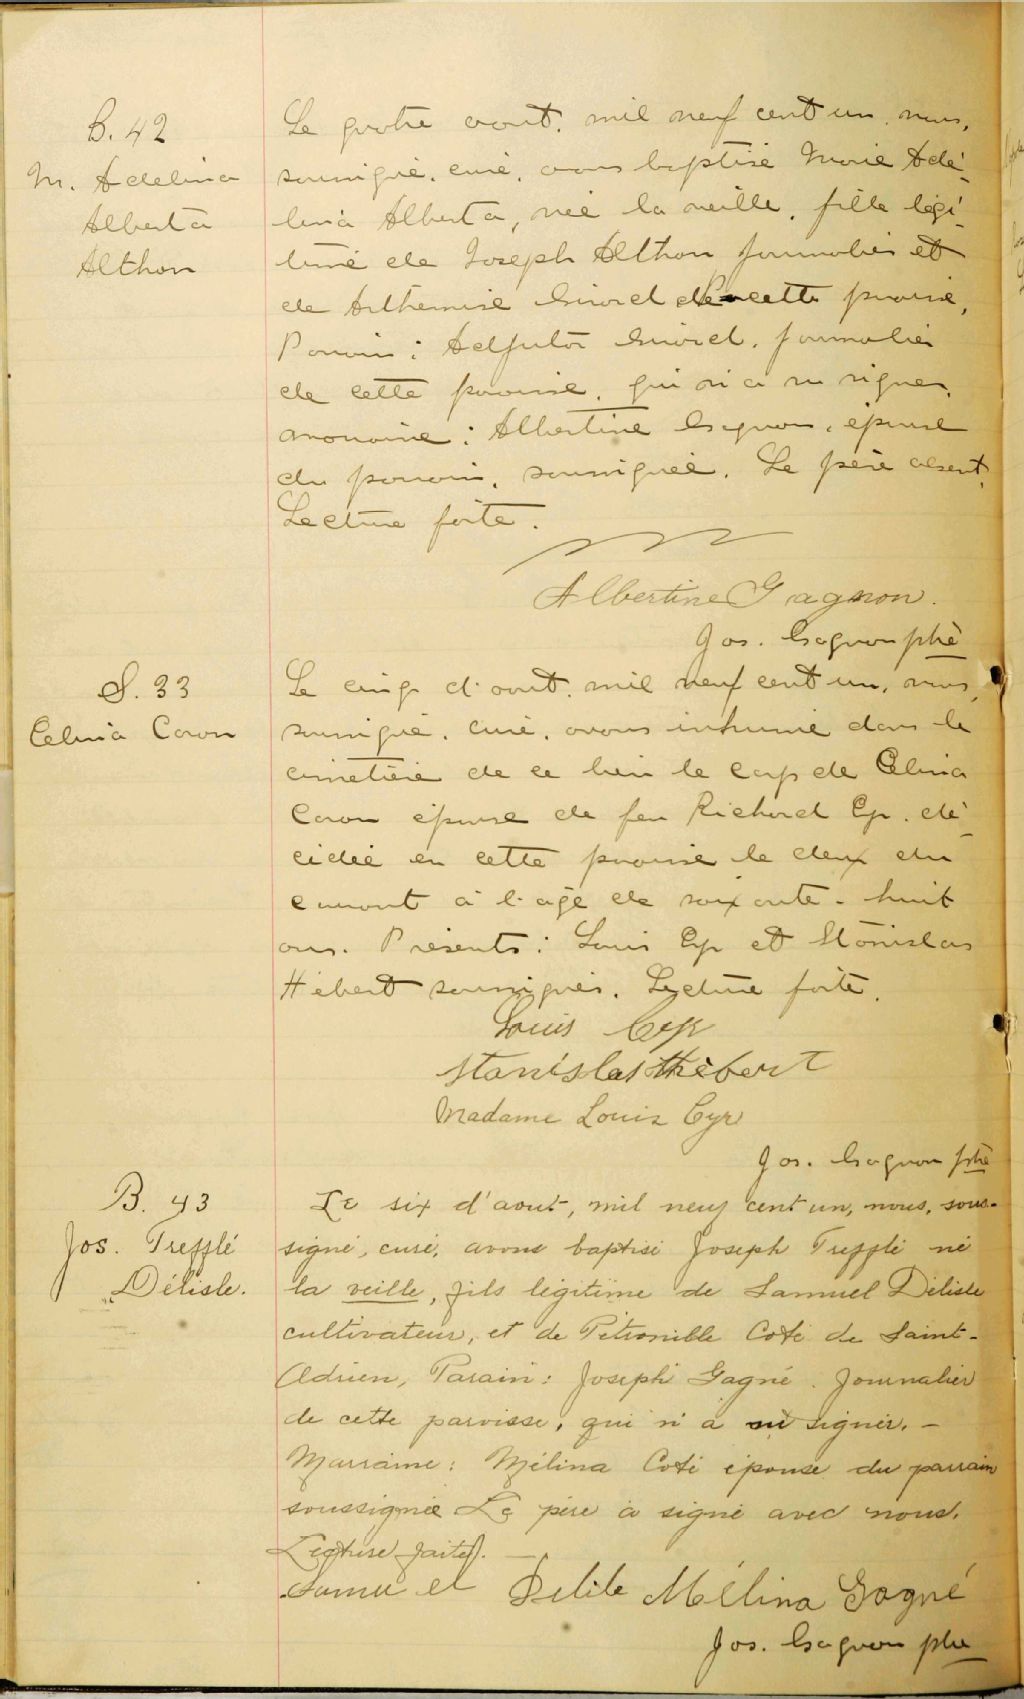 B. 42
M. Adelina
Alberta
Althon
Le quatre aout, mil neuf cent un, nous,
soussigné, curé, avons baptisé Marie Adé-
lina Alberta, née la veille, fille légi-
time de Joseph Althon journalier et
de Arthemise Girard de cette paroisse,
Parrain : Adjutor Girard, journalier
de cette paroisse, qui n'a su signer,
marraine : Albertine Gagnon, épouse
du parrain, soussignée. Le père absent,
Lecture faite.
Albertine Gagnon.
Jos. Gagnon ptre
S. 33
Celina Caron
Le cinq d'aout, mil neuf cent un, nous,
soussigné, curé, avons inhumé dans le
cimetière de ce lieu le corps de Celina
Caron épouse de feu Richard Cyr, dé-
cédée en cette paroisse le deux du
courant à l'age de soixante-huit
ans. Présents : Louis Cyr et Stanislas
Hébert soussignés. Lecture faite.
Louis Cyr
Stanislas Hébert
Madame Louis Cyr
Jos. Gagnon ptre
B. 43
Jos. Trefflé
Délisle.
Le six d'aout, mil neuf cent un, nous, sous-
signé, curé, avons baptisé Joseph Trefflé né
la veille, fils légitime de Samuel Délisle
cultivateur, et de Pétronille Coté de Saint-
Adrien, Parain : Joseph Gagné. Journalier
de cette paroisse, qui n'a su signer. –
Marraine : Mélina Coté épouse du parrain
soussignée Le père a signé avec nous.
Lecture faite. –
Samuel Delile Mélina Gagné
Jos. Gagnon ptre